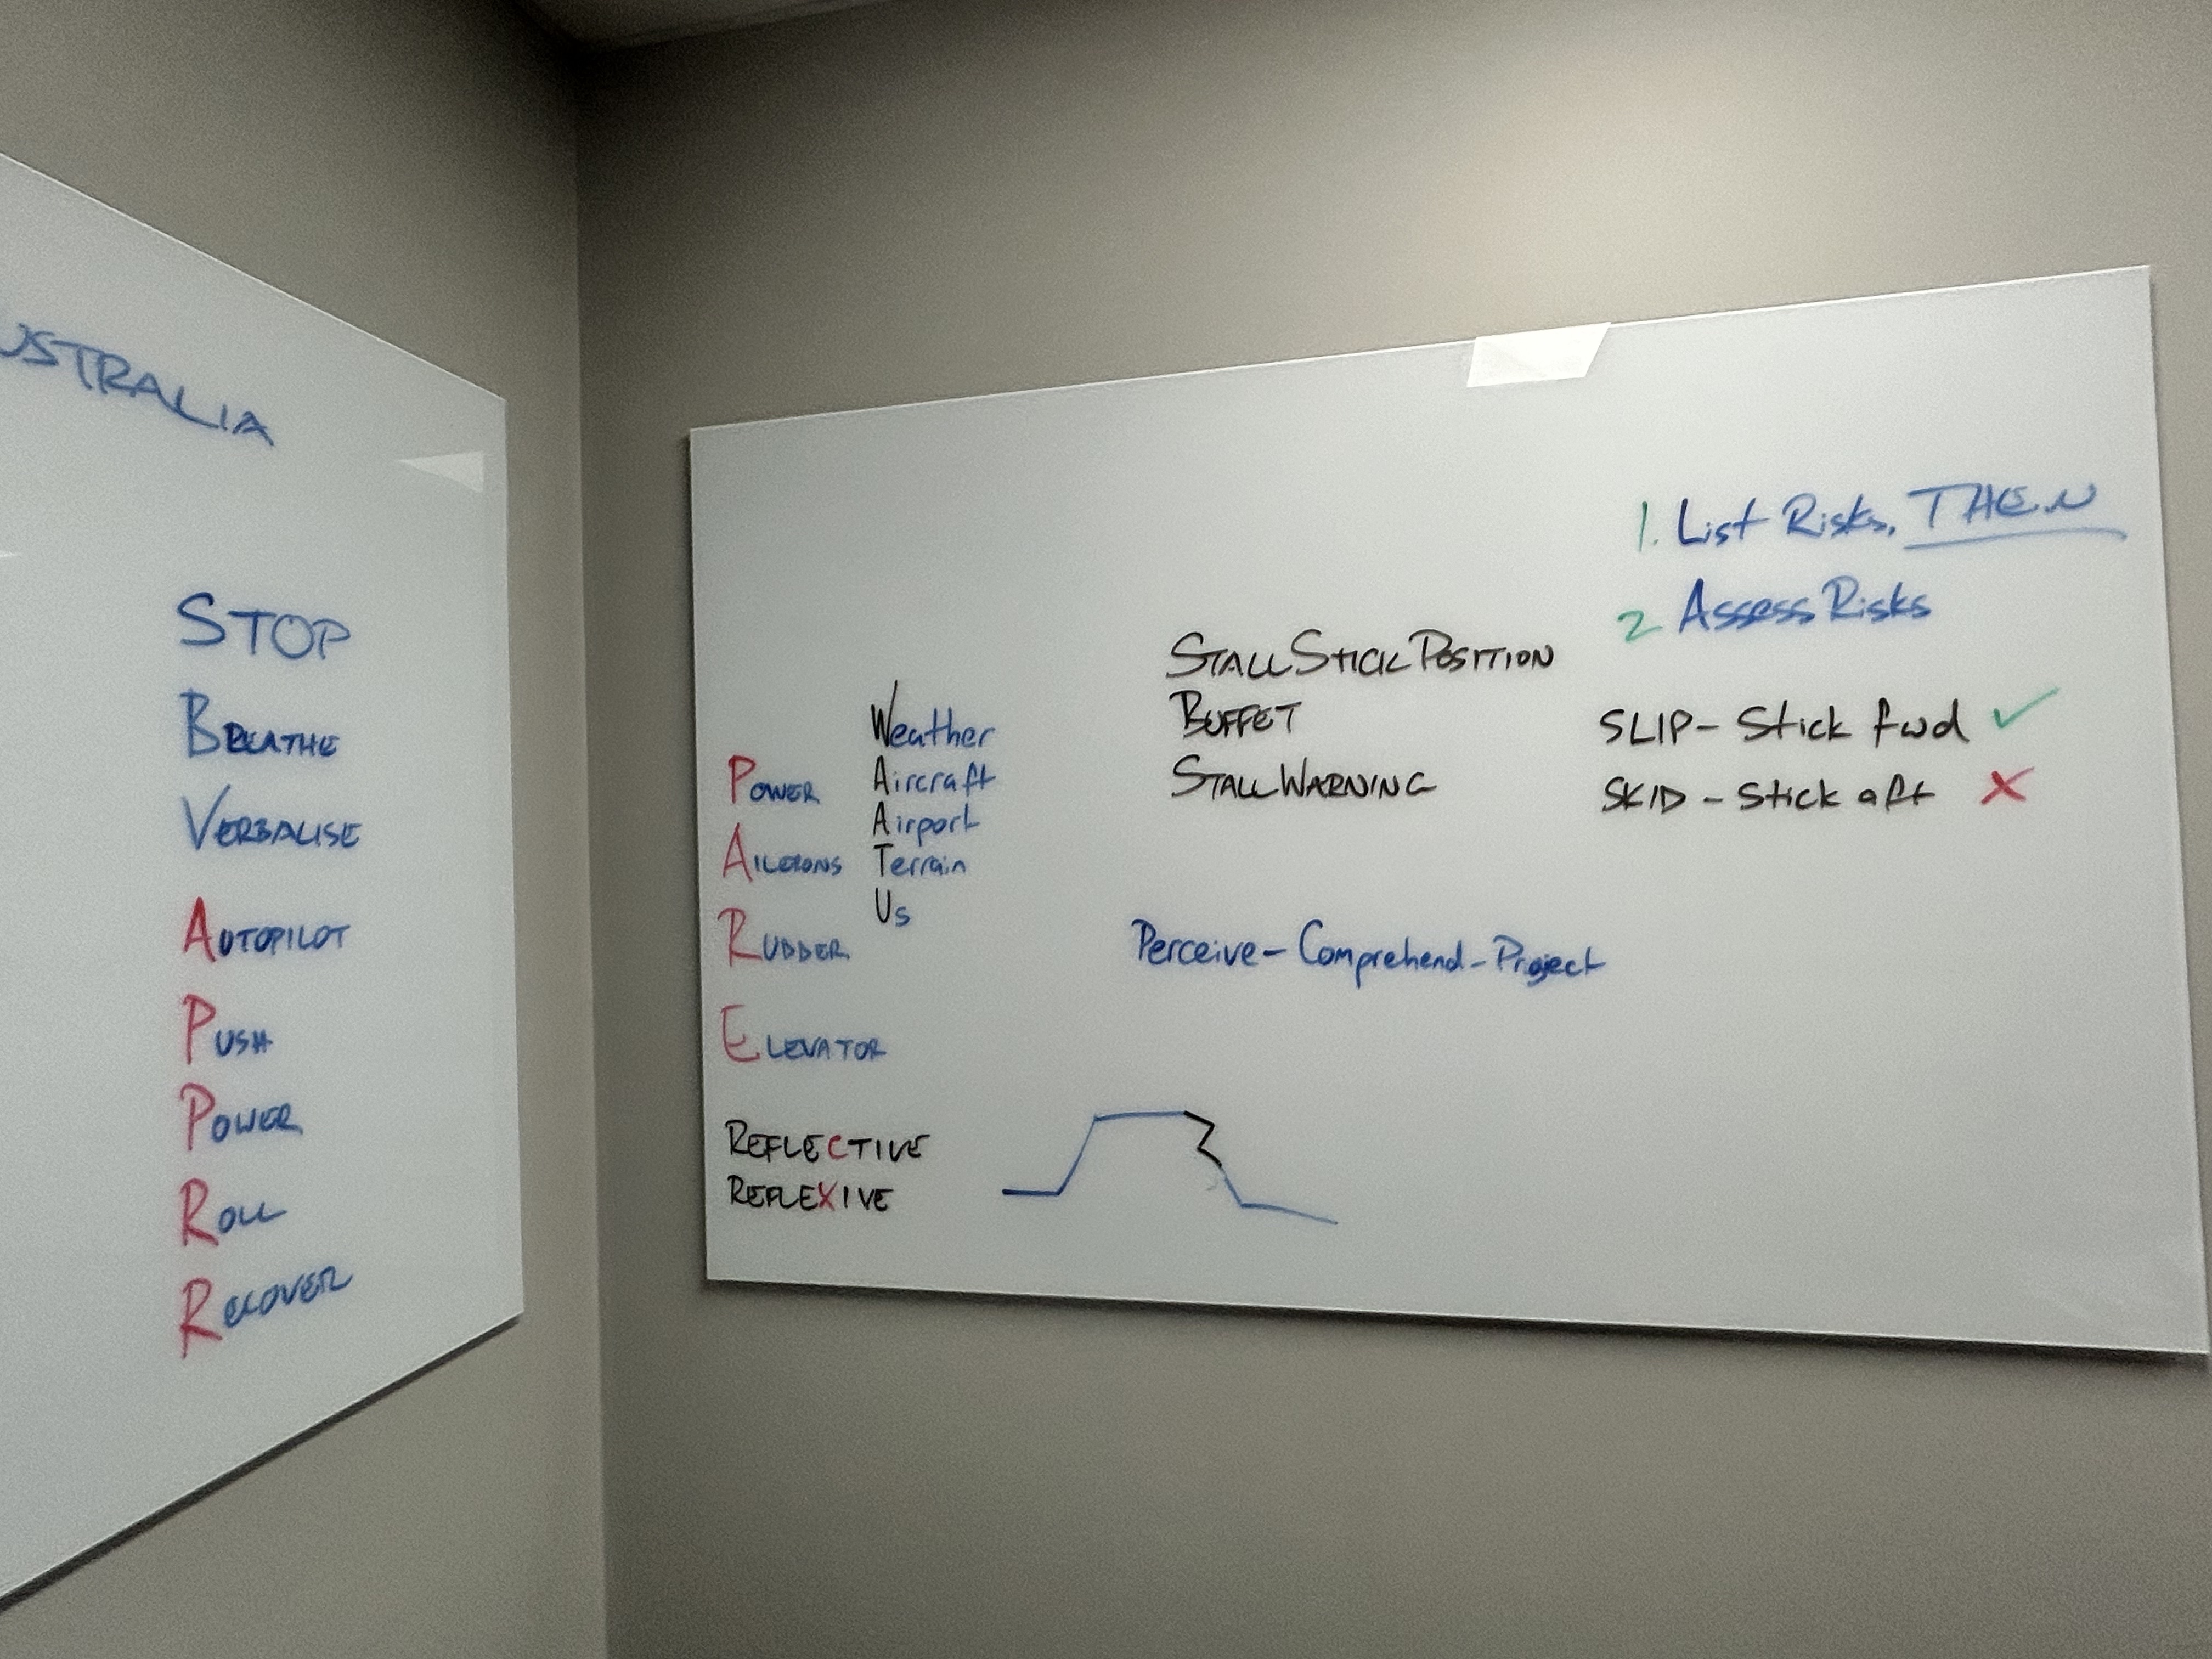 USTRALIA
STOP
BREATHE
VERBALISE
AUTOPILOT
PUSH
POWER
ROLL
RECOVER
POWER
AILERONS
RUDDER
ELEVATOR
REFLECTIVE
REFLEXIVE
Weather
Aircraft
Airport
Terrain
Us
STALL STICK POSITION
BUFFET
STALL WARNING
Perceive - Comprehend - Project
1. List Risks, THEN
2 Assess Risks
SLIP - Stick fwd ✓
SKID - Stick aft X